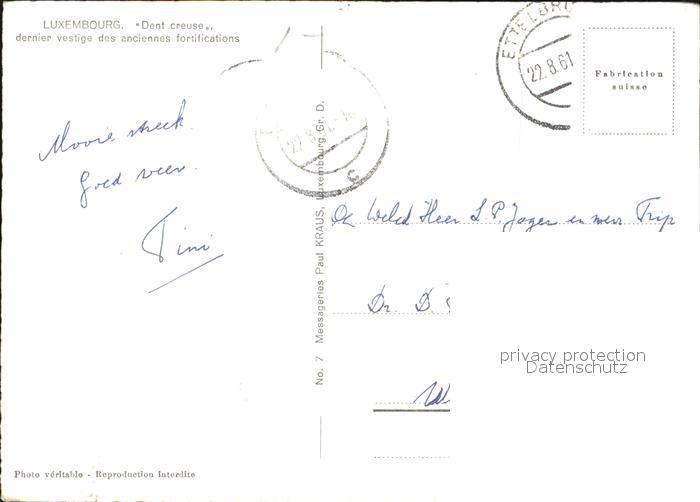 LUXEMBOURG. "Dent creuse„,
dernier vestige des anciennes fortifications
ETTELBRÜ
22.8.61
Fabrication
suisse
22.8.61
C
Mooie streek.
Goed weer.
Tini
No. 7 Messageries Paul KRAUS, Luxembourg Gr. D.
De Weled Heer L. P. Jager en mevr Trip
Dr. D.
privacy protection
Datenschutz
Photo véritable - Reproduction interdite